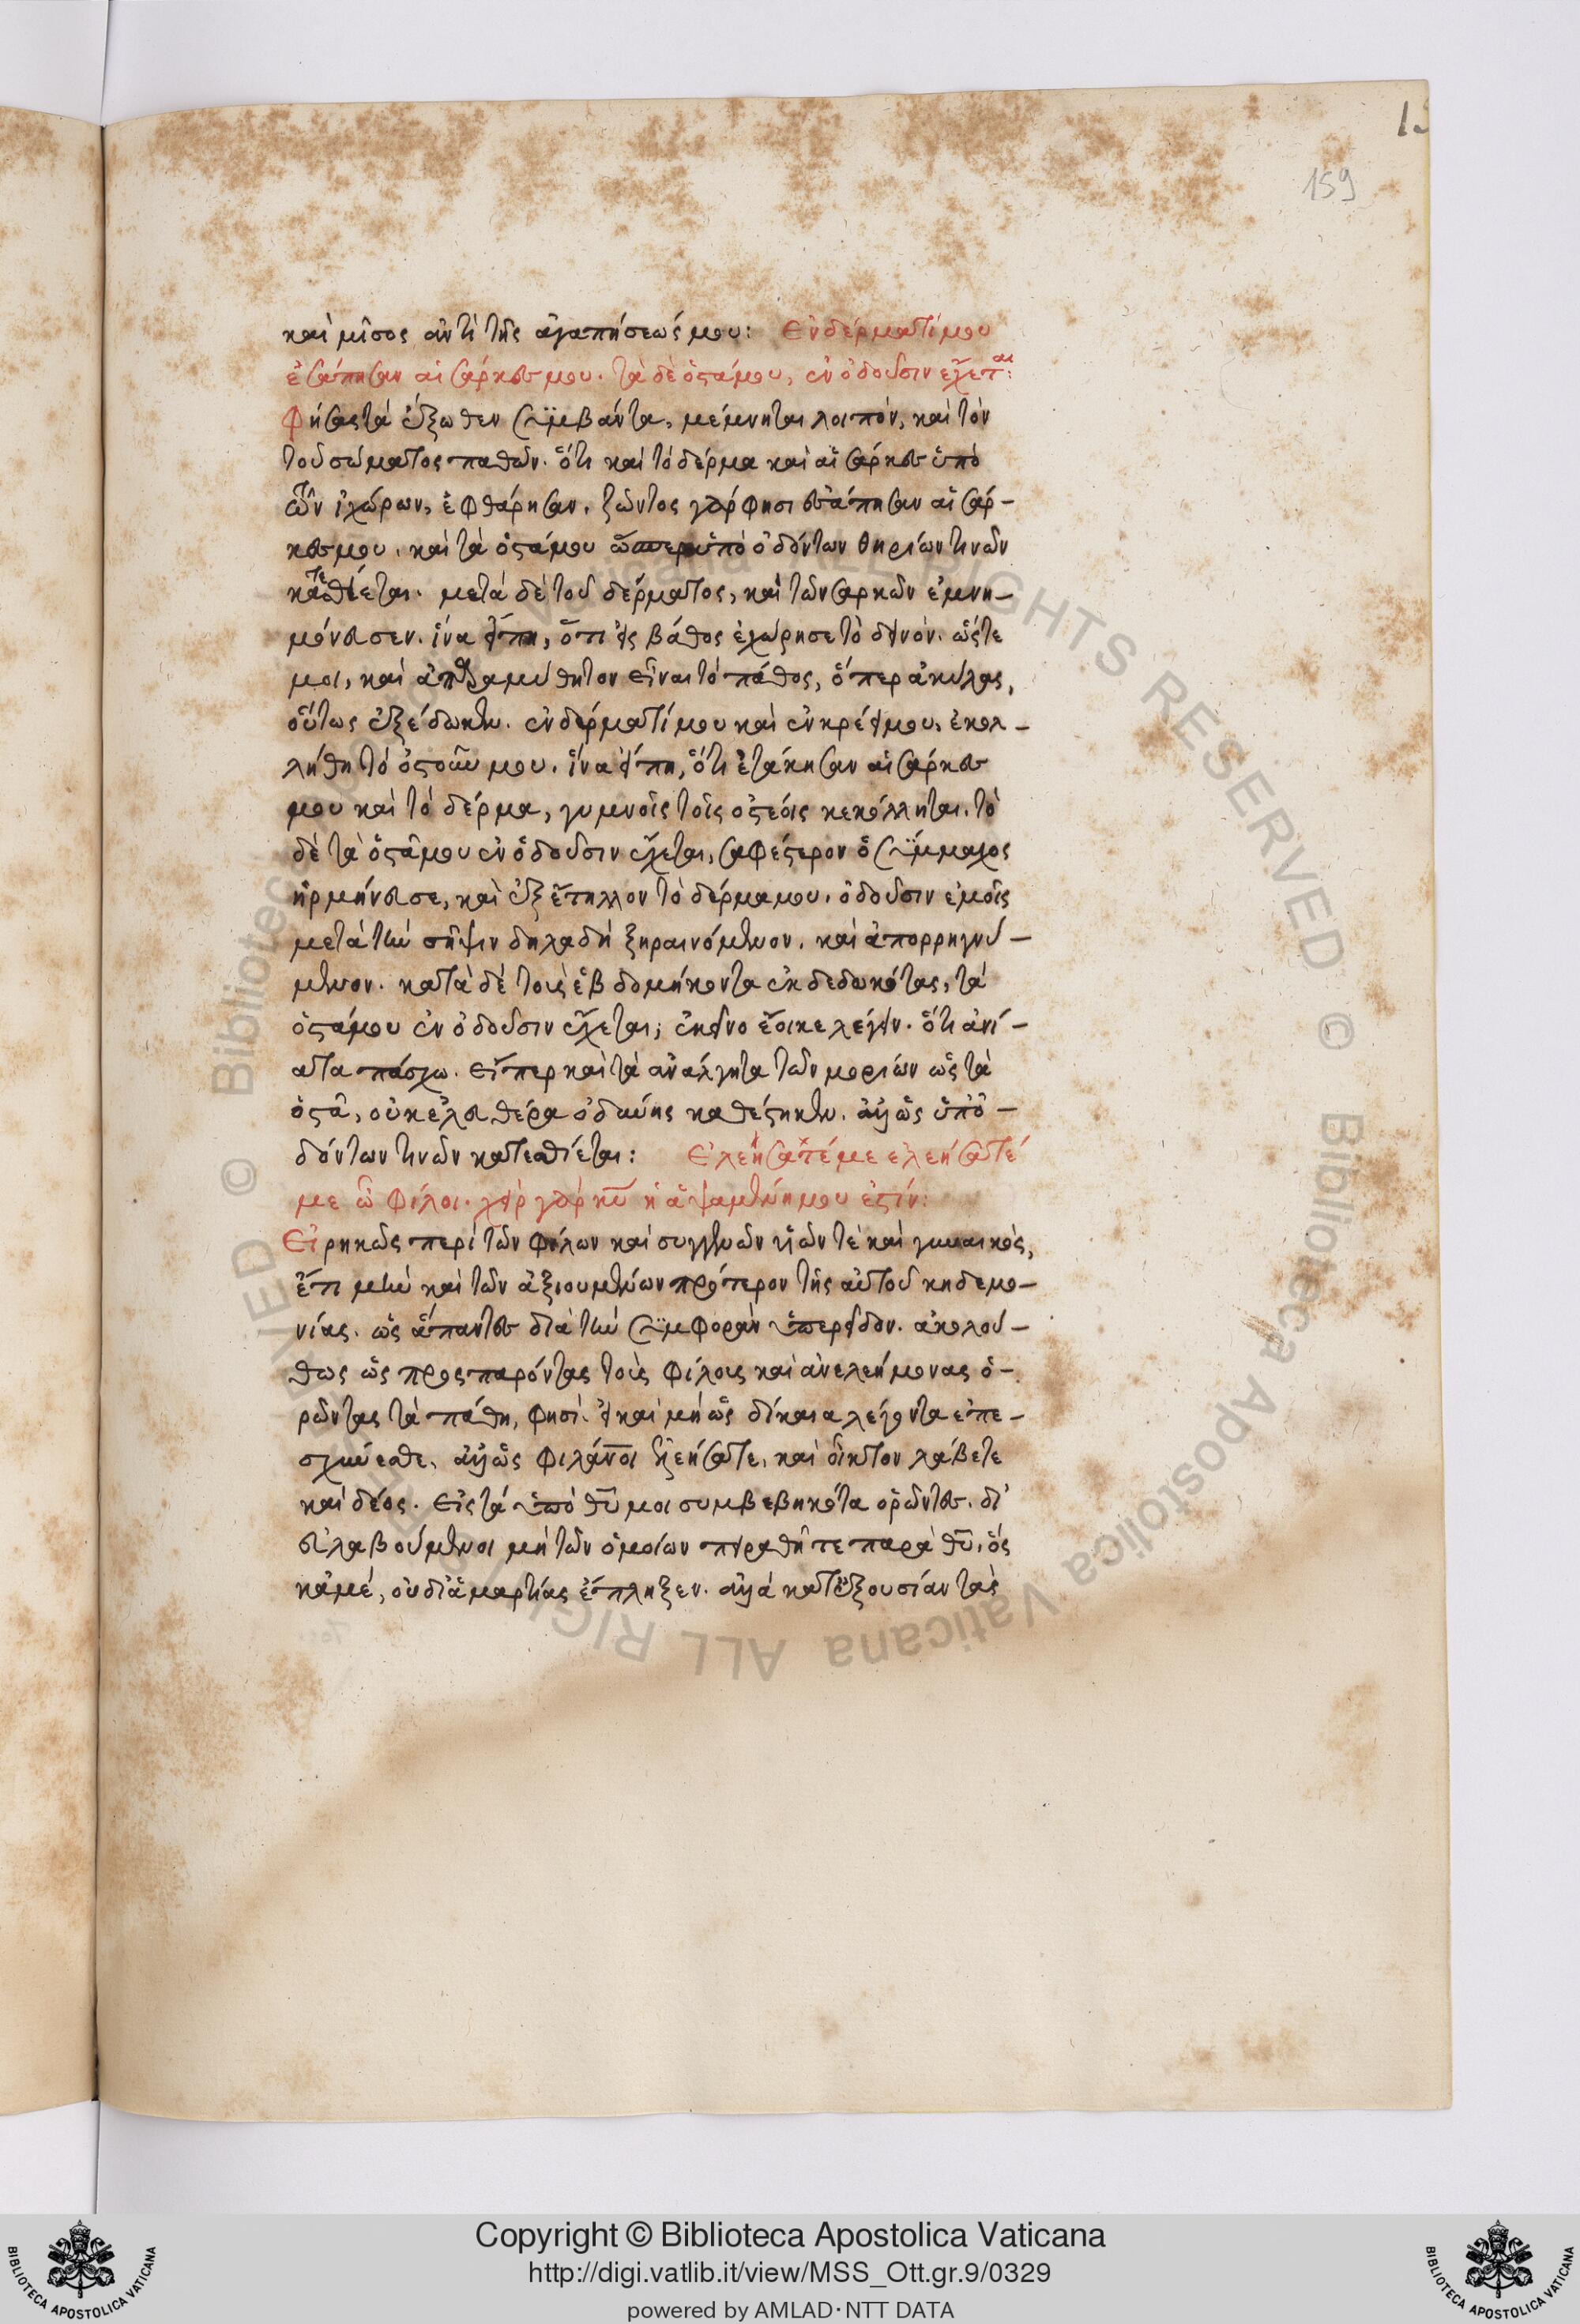 159
καὶ μῖσος ἀντὶ τῆς ἀγαπήσεώς μου: Ἐν δέρματί μου
ἐσάπησαν αἱ σάρκες μου. τὰ δὲ ὀστά μου, ἐν ὀδοῦσιν ἔχεται:
Φήσας τὰ ἔξωθεν συμβάντα, μέμνηται λοιπὸν, καὶ τὸν
τοῦ σώματος παθῶν. ὅτι καὶ τὸ δέρμα καὶ αἱ σάρκες ὑπὸ
τῶν ἰχώρων, ἐφθάρησαν. ζῶντος γάρ φησι ἐσάπησαν αἱ σάρ-
κες μου. καὶ τὰ ὀστά μου ὥσπερ ὑπὸ ὀδόντων θηρίων τινῶν
κατεσθίεται. μετὰ δὲ τοῦ δέρματος, καὶ τῶν σαρκῶν ἐμνη-
μόνευσεν. ἵνα εἴπη, ὅτι εἰς βάθος ἐχώρησε τὸ δεινόν. ὥστε
μοι, καὶ ἀπαραμύθητον εἶναι τὸ πάθος, ὅπερ ἀκύλας,
οὕτως ἐξέδωκεν. ἐν δέρματί μου καὶ ἐν κρέει μου, ἐκολ-
λήθη τὸ ὀστοῦν μου. ἵνα εἴπη, ὅτι ἐτάκησαν αἱ σάρκες
μου καὶ τὸ δέρμα, γυμνοῖς τοῖς ὀστέοις κεκόλληται. τὸ
δὲ τὰ ὀστᾶ μου ἐν ὀδοῦσιν ἔχεται, σαφέστερον ὁ σύμμαχος
ἡρμήνευσε, καὶ ἐξέτιλλον τὸ δέρμα μου. ὀδοῦσιν ἐμοῖς
μετὰ τὴν σῆψιν δηλαδὴ ξηραινόμενον. καὶ ἀπορρηγνύ-
μενον. κατὰ δὲ τοὺς ἑβδομήκοντα ἐκδεδωκότας, τὰ
ὀστά μου ἐν ὀδοῦσιν ἔχεται, ἐκεῖνο ἔοικε λέγειν. ὅτι ἀνί-
ατα πάσχω. εἴπερ καὶ τὰ ἀνάλγητα τῶν μορίων ὡς τὰ
ὀστᾶ, οὐκ ἐλευθέρα ὀδύνης καθέστηκεν. ἀλλ' ὡς ὑπὸ ὀ-
δόντων τινῶν κατεσθίεται: Ἐλεήσατέ με ἐλεήσατέ
με ὦ φίλοι. χεὶρ γάρ κυ ἡ ἁψαμένη μου ἐστίν:
Εἰρηκὼς περὶ τῶν φίλων καὶ συγγενῶν υἱῶν τὲ καὶ γυναικὸς,
ἔτι μὴν καὶ τῶν ἀξιουμένων πρότερον τῆς αὐτοῦ κηδεμο-
νίας. ὡς ἅπαντες διὰ τὴν συμφορὰν ὑπερεῖδον. ἀκολού-
θως ὡς πρὸς παρόντας τοὺς φίλους καὶ ἀνελεήμονας ὁ-
ρῶντας τὰ πάθη, φησὶ. εἰ καὶ μὴ ὡς δίκαια λέγοντα ἐπε-
σχύεσθε, ἀλλ' ὡς φιλάνοι ἐλεήσατε, καὶ οἶκτον λάβετε
καὶ δέος. εἰς τὰ ὑπὸ θυ μοι συμβεβηκότα ὁρῶντες. δι'
εὐλαβούμενοι μὴ τῶν ὁμοίων πειραθῆτε παρὰ θυ, ὅς
κἀμέ, οὐ δι' ἁμαρτίας ἔπληξεν. ἀλλὰ κατ' ἐξουσίαν τὰς
Copyright © Biblioteca Apostolica Vaticana
http://digi.vatlib.it/view/MSS_Ott.gr.9/0329
powered by AMLAD·NTT DATA